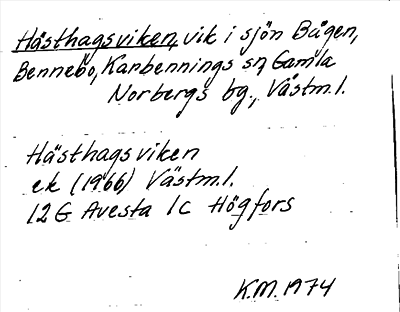 Hästhagsviken, vik i sjön Bågen,
Bennebo, Karbennings sn, Gamla
Norbergs bg., Västm.l.
Hästhagsviken
ek (1966) Västm.l.
12G Avesta 1c Högfors
K.M. 1974